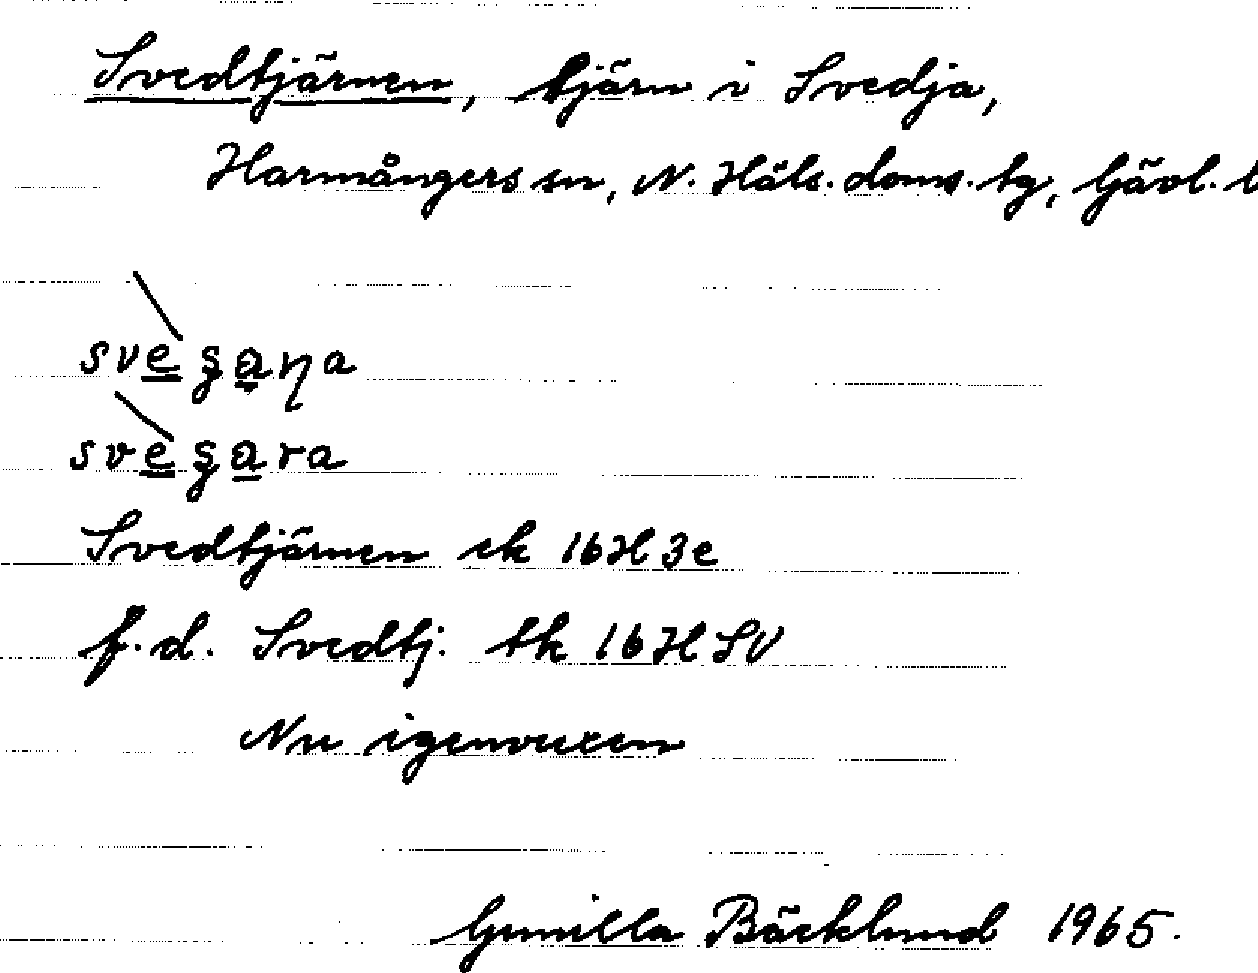 Svedtjärnen, tjärn i Svedja,
Harmångers sn, N. Häls. doms. tg, Gävl. l
Svedtjärnen ek 16H3e
f.d. Svedtj. tk 16HSV
Nu igenvuxen
Gunilla Bäcklund 1965.